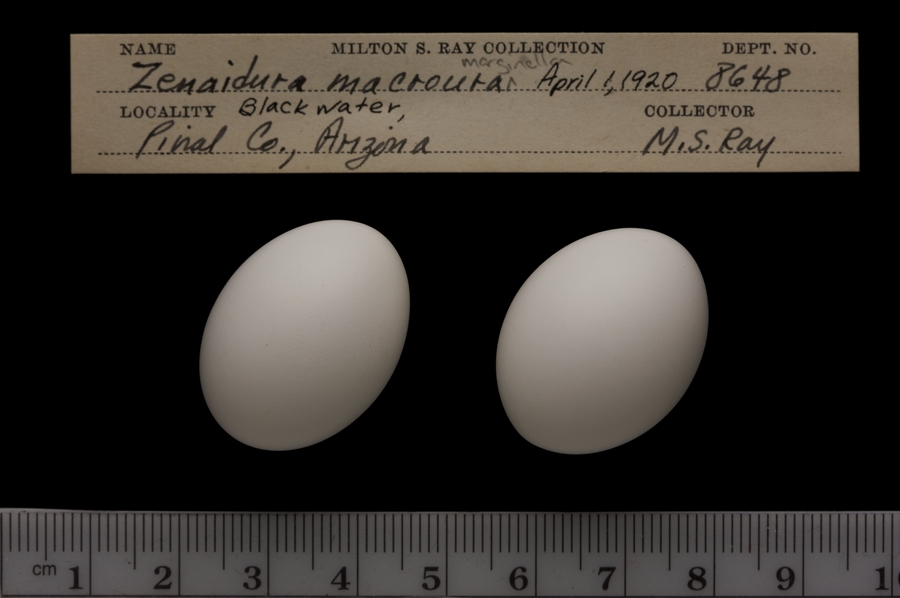 NAME MILTON S. RAY COLLECTION DEPT. NO.
marginella
Zenaidura macroura ^ April 1, 1920 8648
LOCALITY Blackwater, COLLECTOR
Pinal Co., Arizona M.S. Ray
cm 1 2 3 4 5 6 7 8 9 1